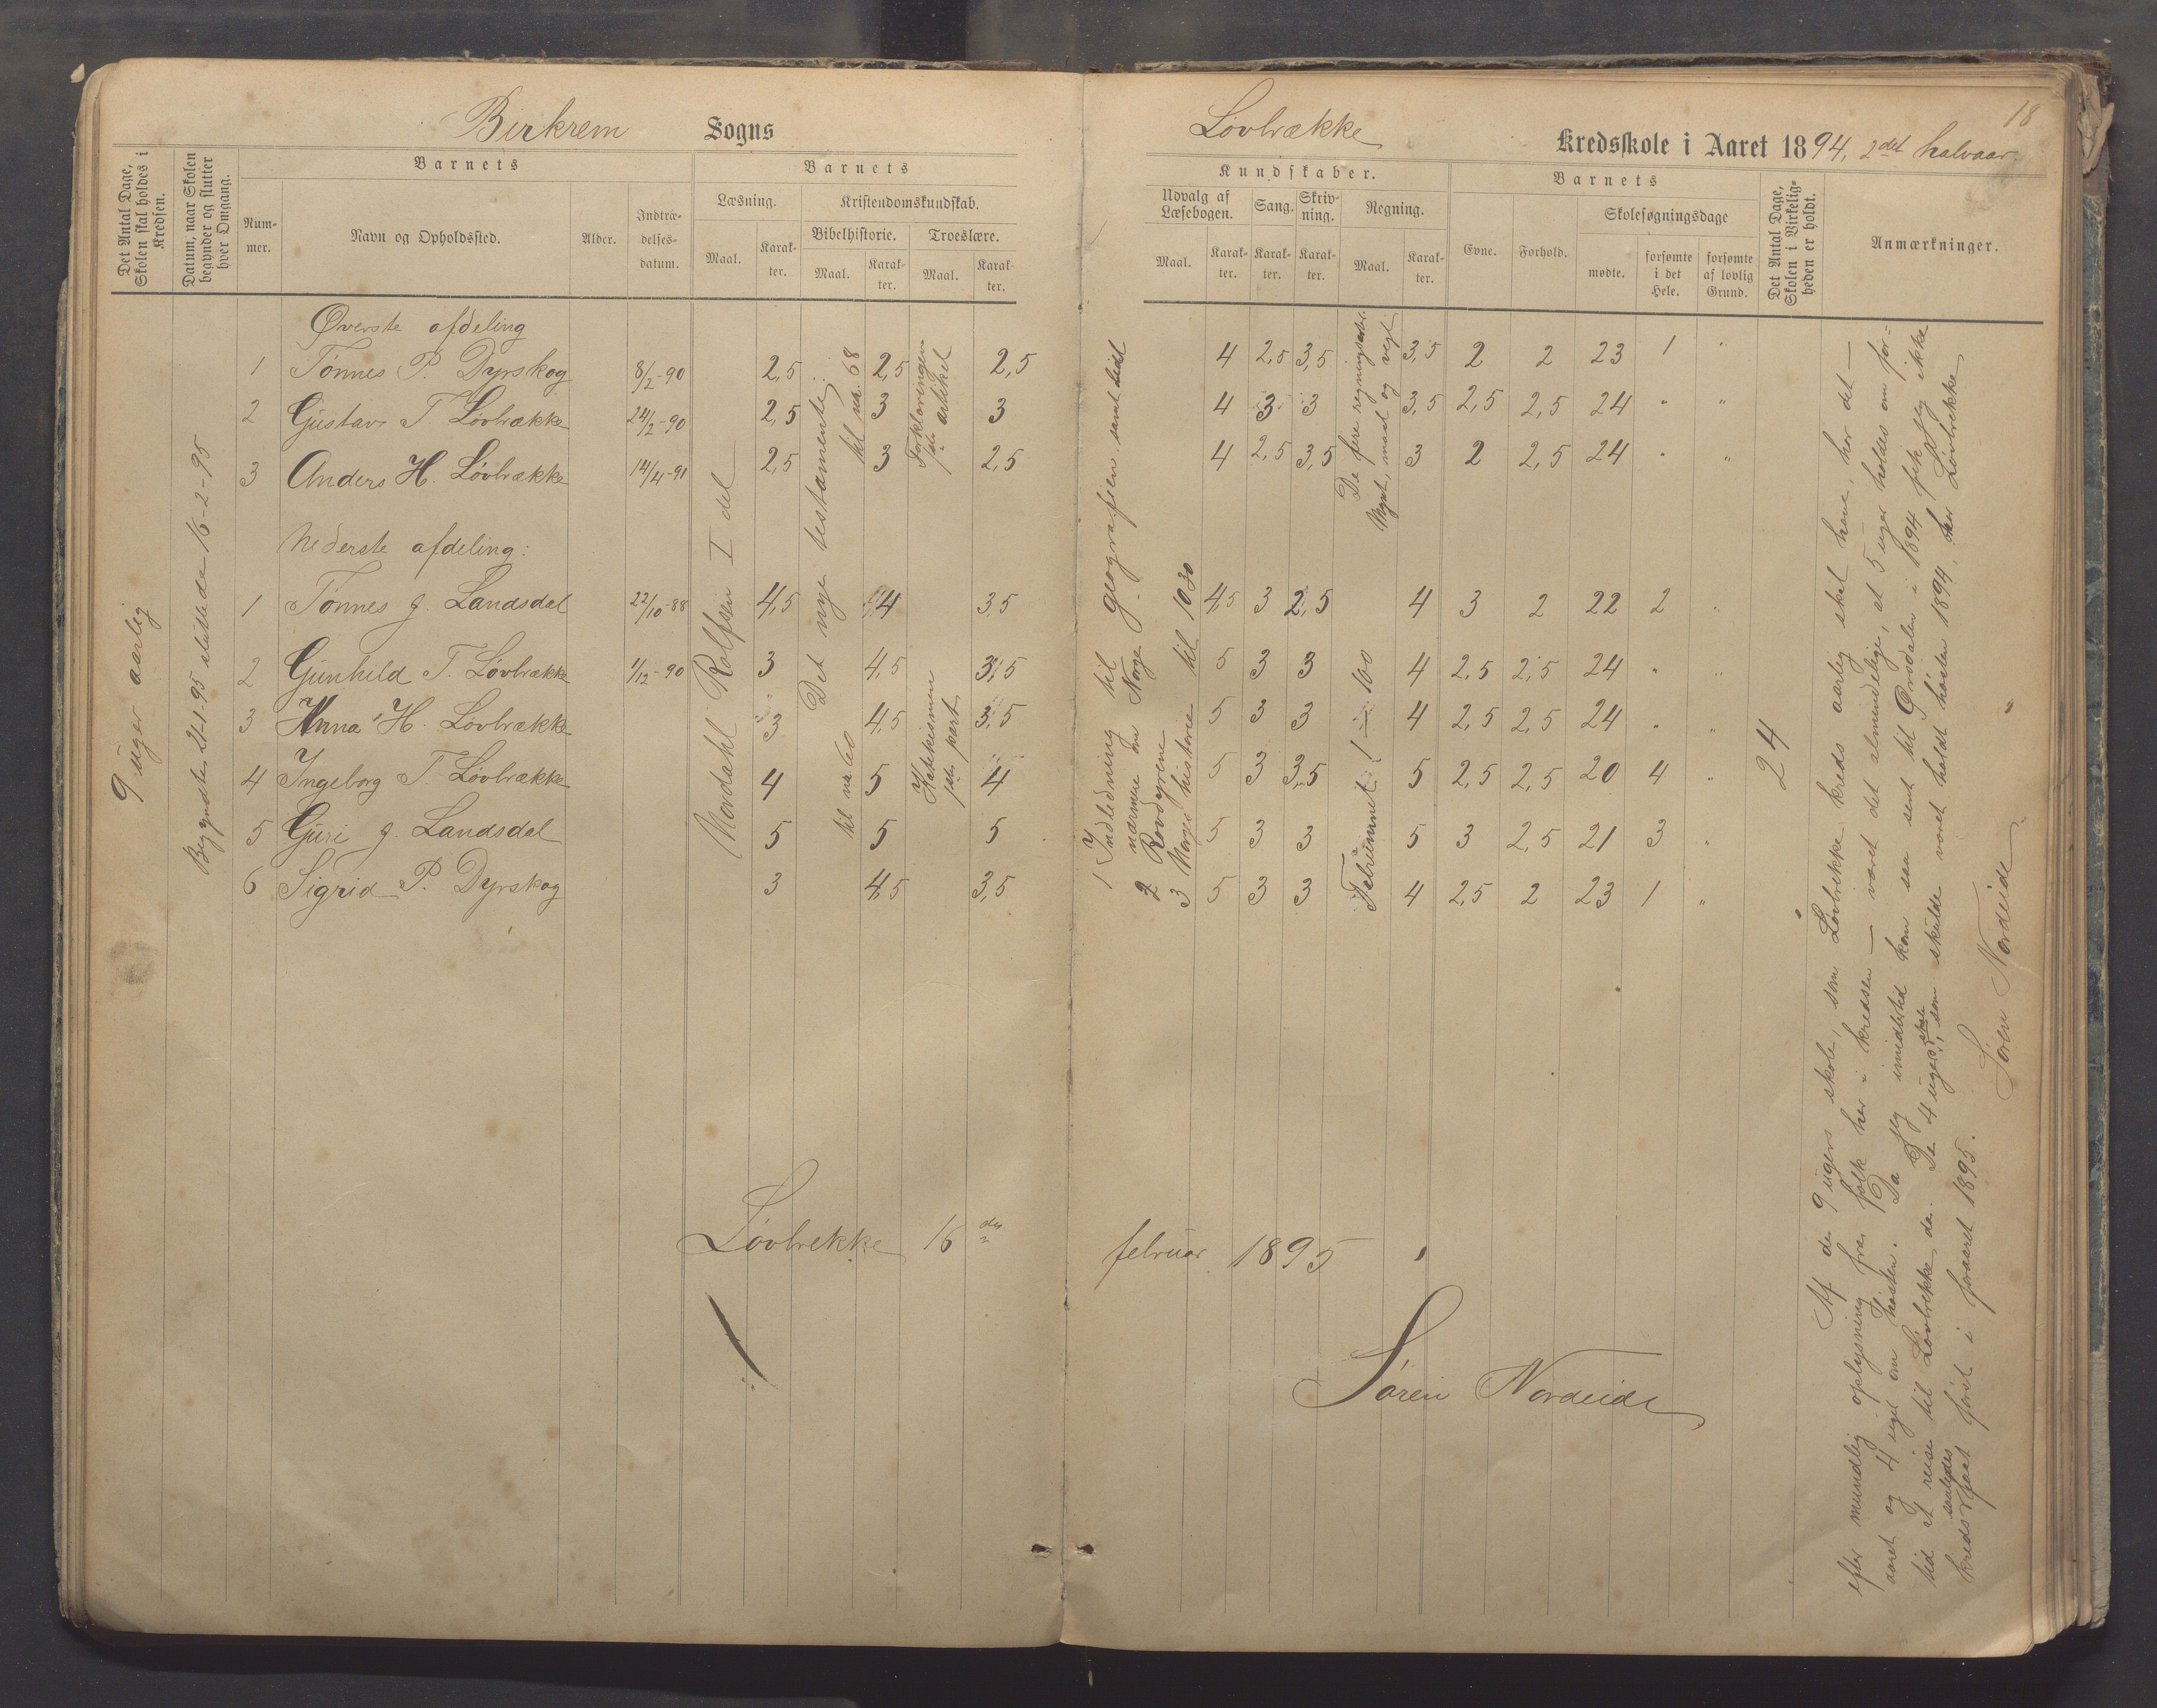 Birkrem Sogns
Løvbrække Kredsskole i Aaret 1894, 2det halvaar.
18
Det Antal Dage, Skolen skal holdes i Kredsen.
Datum, naar Skolen begynder og slutter hver Omgang.
Barnets
Nummer.
Navn og Opholdssted.
Alder.
Indtrædelsesdatum.
Barnets
Læsning.
Maal.
Karakter.
Kristendomskundskab.
Bibelhistorie.
Maal.
Karakter.
Troeslære.
Maal.
Karakter.
Kundskaber.
Udvalg af Læsebogen.
Maal.
Karakter.
Sang.
Karakter.
Skrivning.
Karakter.
Regning.
Maal.
Karakter.
Barnets
Evne.
Forhold.
Skolesøgningsdage
mødte.
forsømte i det Hele.
forsømte af lovlig Grund.
Det Antal Dage, Skolen i Virkeligheden er holdt.
Anmærkninger.
9 uger aarlig
Begyndte 21-1-95 sluttede 16-2-95
Øverste afdeling
1 Tønnes P. Dyrskog 8/2-90 2,5 2,5 2,5 4 2,5 3,5 3,5 2 2 23 1 "
2 Gustav T. Løvbrække 24/2-90 2,5 3 3 4 3 3 3,5 2,5 2,5 24 " "
3 Anders H. Løvbrække 14/4-91 2,5 3 2,5 4 2,5 3,5 3 2 2,5 24 " "
Nederste afdeling:
1 Tønnes G. Landsdal 22/10-88 4,5 4 3,5 4,5 3 2,5 4 3 2 22 2 "
2 Gunhild T. Løvbrække 1/12-90 3 4,5 3,5 5 3 3 4 2,5 2,5 24 " "
3 Anna H. Løvbrække 3 4,5 3,5 5 3 3 4 2,5 2,5 24 " "
4 Ingeborg T. Løvbrække 4 5 4 5 3 3,5 5 2,5 2,5 20 4 "
5 Guri G. Landsdal 5 5 5 5 3 3 5 3 2,5 21 3 "
6 Sigrid P. Dyrskog 3 4,5 3,5 5 3 3 4 2,5 2 23 1 "
Nordahl Rolfsen I del
Det nye testamente
til no. 68
til no 60
Forklaringen
artikel
Katekismen
part
1 Indledning til geografien samt lidt
nærmere om Norge
2 Rovdyrene
3 Norges historie til 1030
De fire regningsarter.
Mynt, maal og vegt
Talrummet 1 – 100
24
Af de 9 ugers skole, som Løvbrekke kreds aarlig skal have, har det –
efter mundlig oplysning fra folk her i kredsen – været det almindelige, at 5 uger holdes om for-
aaret og 4 uger om høsten. Da jeg imidlertid kom saa sent til Ørsdalen i 1894 fik jeg ikke
tid at reise til Løvbrekke da. De 4 ugers skole, som skulde været holdt høsten 1894, har Løvbrekke
kreds saaledes faat først i foraaret 1895.
Søren Nordeide
Løvbrekke 16de februar 1895
Søren Nordeide